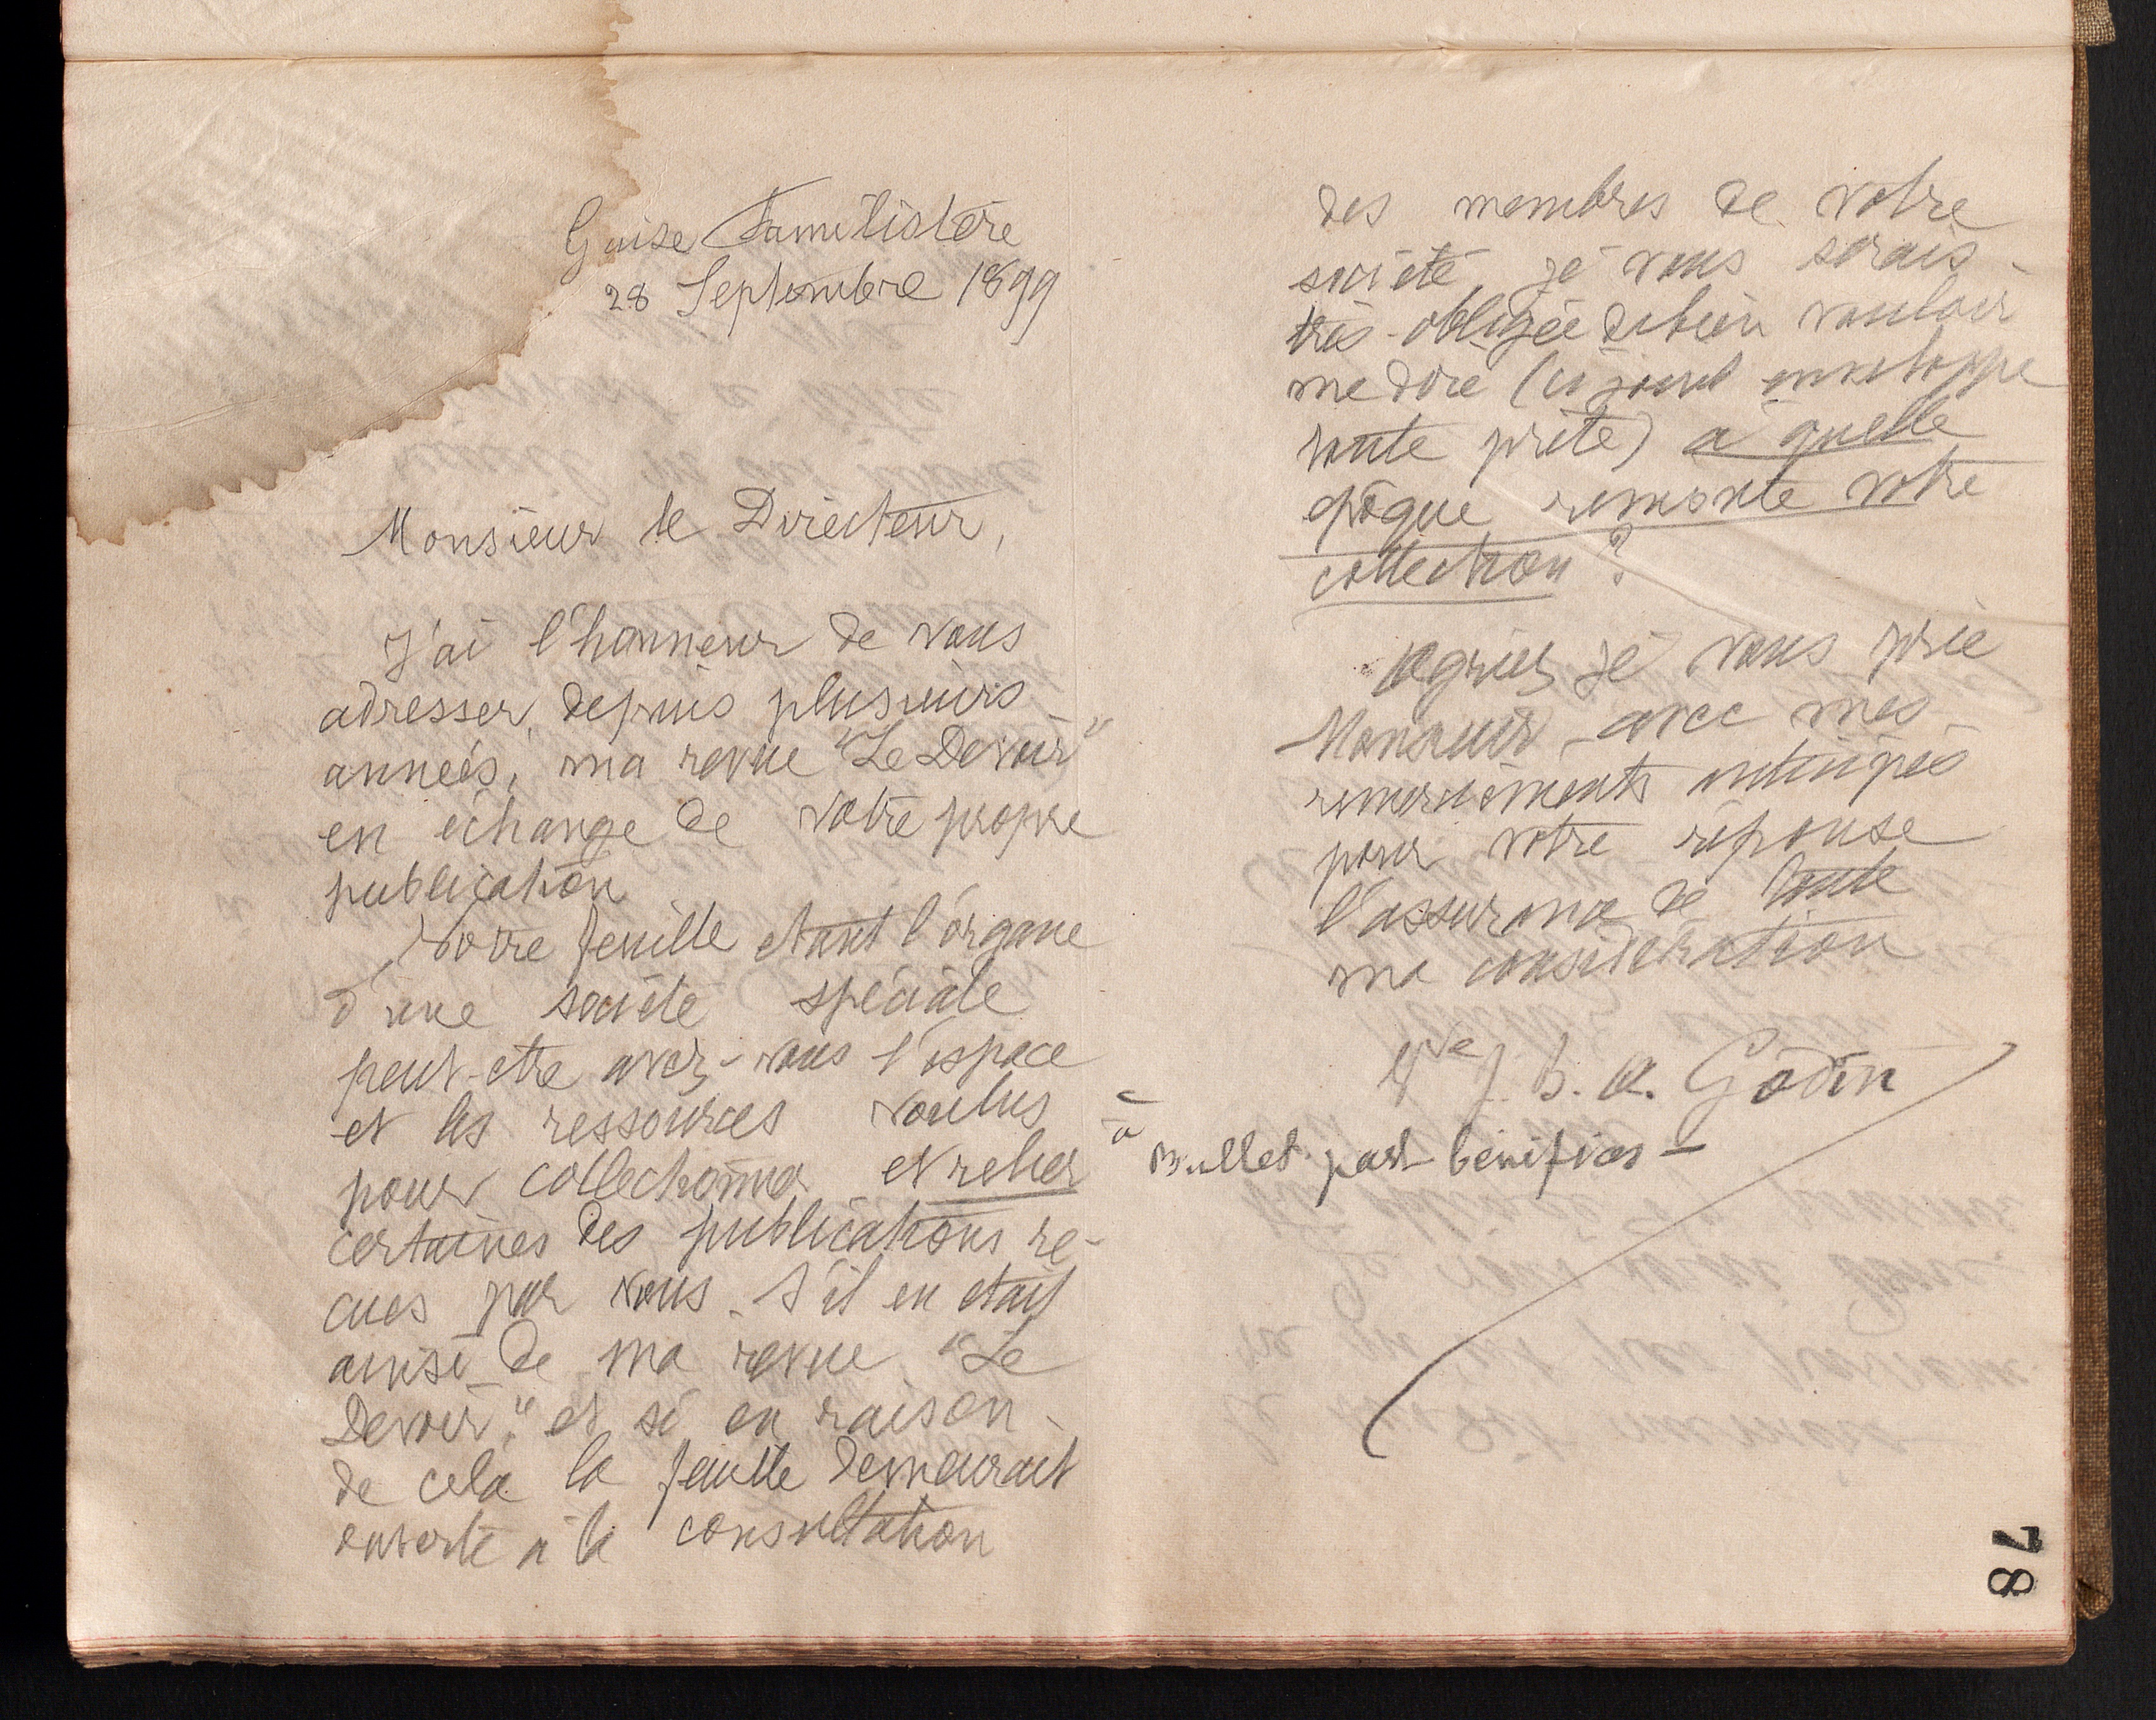 Guise Familistère
28 Septembre 1899
Monsieur le Directeur,
J'ai l'honneur de vous
adresser, depuis plusieurs
années, ma revue "Le Devoir"
en échange de votre propre
publication
Votre feuille étant l'organe
d'une société spéciale
peut-être avez-vous l'espace
et les ressources voulus
pour collectionner et relier
certaines des publications re-
çues par vous. S'il en était
ainsi de ma revue "Le
Devoir," et si en raison
de cela la feuille demeurait
ouverte à la consultation
des membres de votre
société je vous serais
très-obligée de bien vouloir
me dire (ci joint enveloppe
toute prête) à quelle
époque remonte votre
collection ?
Agréez je vous prie
Monsieur, avec mes
remerciements anticipés
pour votre réponse
l'assurance de toute
ma considération
Vve J. B. A. Godin
à Bullet. part-bénéfices -
78